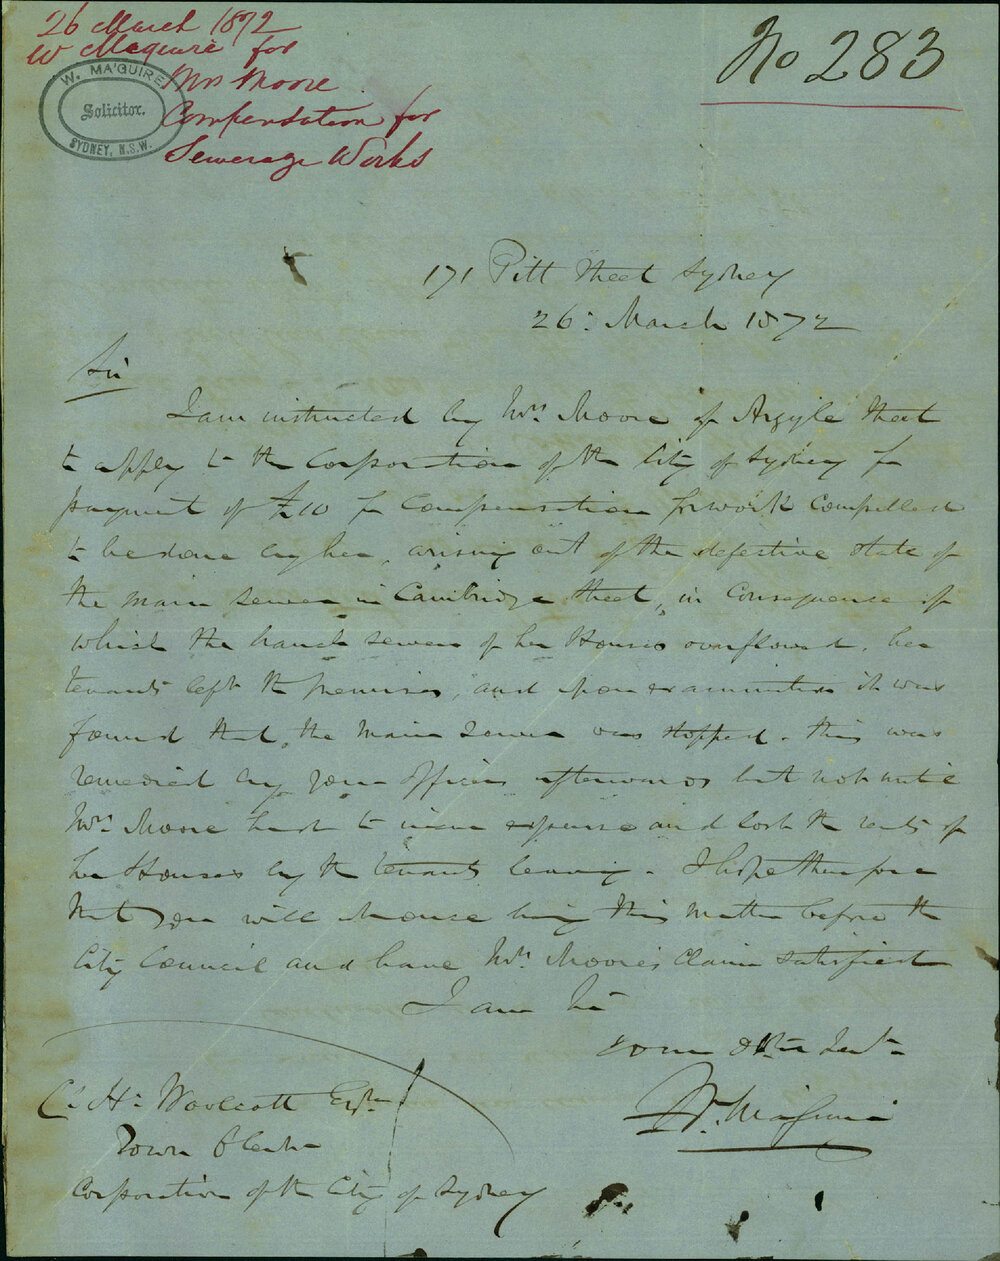 26 March 1872
W Maguire for
Mrs Moore
Compensation for
Sewerage Works
W. MAGUIRE
Solicitor.
SYDNEY, N.S.W.
No 283
171 Pitt Street Sydney
26: March 1872
Sir
I am instructed by Mrs Moore of Argyle Street
to apply to the Corporation of the City of Sydney for
payment of £10 for Compensation for work compelled
to be done by her, arising out of the defective state of
the main sewer in Cambridge Street, in Consequence of
which the branch sewer of her Houses overflowed, her
tenants left the premises, and upon examination it was
found that the main Sewer was stopped. this was
remedied by your Officers afterwards but not until
Mrs Moore had to incur expense and lost the rents of
her Houses by the tenants leaving. I hope therefore
that you will please bring this matter before the
City Council and have Mrs Moore's Claim satisfied
I am Sir
your Obt Servt
Wm Maguire
C. H. Woolcott Esqr
Town Clerk
Corporation of the City of Sydney